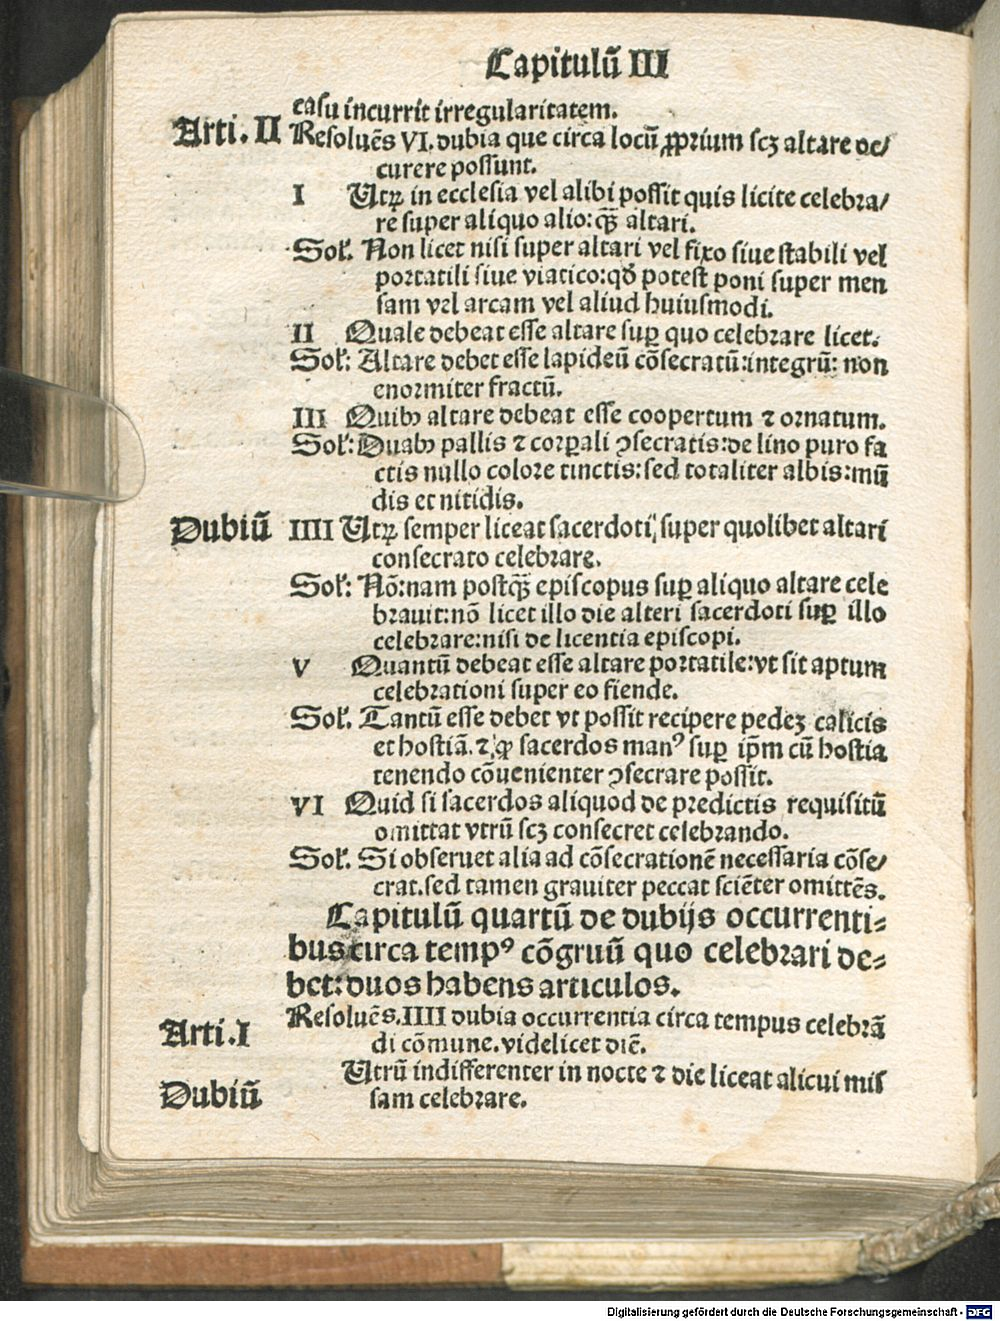 Capitulū III
casu incurrit irregularitatem.
Arti. II Resoluēs VI. dubia que circa locū ꝓprium scꝫ altare oc/
curere possunt.
I Utꝝ in ecclesia vel alibi possit quis licite celebra/
re super aliquo alio: qꝫ̄ altari.
Sol'. Non licet nisi super altari vel fixo siue stabili vel
portatili siue viatico: qđ potest poni super men
sam vel arcam vel aliud huiusmodi.
II Quale debeat esse altare suꝑ quo celebrare licet.
Sol': Altare debet esse lapideū cōsecratū: integrū: non
enormiter fractū.
III Quibꝰ altare debeat esse coopertum ⁊ ornatum.
Sol': Duabꝰ pallis ⁊ corꝑali ꝯsecratis: de lino puro fa
ctis nullo colore tinctis: sed totaliter albis: mū
dis et nitidis.
Dubiū IIII Utꝝ semper liceat sacerdoti super quolibet altari
consecrato celebrare.
Sol': Nō: nam postqꝫ̄ episcopus suꝑ aliquo altare cele
brauit: nō licet illo die alteri sacerdoti suꝑ illo
celebrare: nisi de licentia episcopi.
V Quantū debeat esse altare portatile: vt sit aptum
celebrationi super eo fiende.
Sol'. Tantū esse debet vt possit recipere pedeꝫ calicis
et hostiā. ⁊ ꝙ sacerdos manꝰ suꝑ ip̄m cū hostia
tenendo cōuenienter ꝯsecrare possit.
VI Quid si sacerdos aliquod de predictis requisitū
omittat vtrū scꝫ consecret celebrando.
Sol'. Si obseruet alia ad cōsecrationē necessaria cōse/
crat. sed tamen grauiter peccat sciēter omittēs.
Capitulū quartū de dubijs occurrenti-
bus circa tempꝰ cōgruū quo celebrari de-
bet: duos habens articulos.
Arti. I Resoluēs. IIII dubia occurrentia circa tempus celebrā
di cōmune. videlicet diē.
Dubiū Utrū indifferenter in nocte ⁊ die liceat alicui mis
sam celebrare.
Digitalisierung gefördert durch die Deutsche Forschungsgemeinschaft - DFG